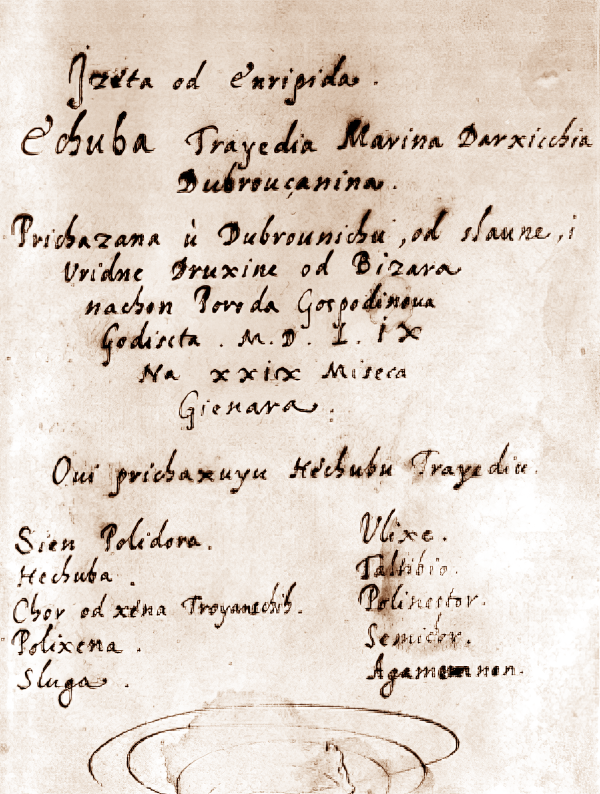 Jzeta od Evripida.
Echuba Trayedia Marina Darxicchia
Dubrouçanina.
Prichazana ù Dubrounichu, od slaune, i
Vridne Druxine od Bizara
nachon Poroda Gospodinoua
Godiscta . M. D. L. ix
Na xxix Miseca
Gienara.
Oui prichaxuyu Hechubu Trayediu.
Sien Polidora.
Hechuba.
Chor od xena Troyanschih.
Polixena.
Sluga.
Vlixe.
Taltibio.
Polinestor.
Semicor.
Agamemnon.